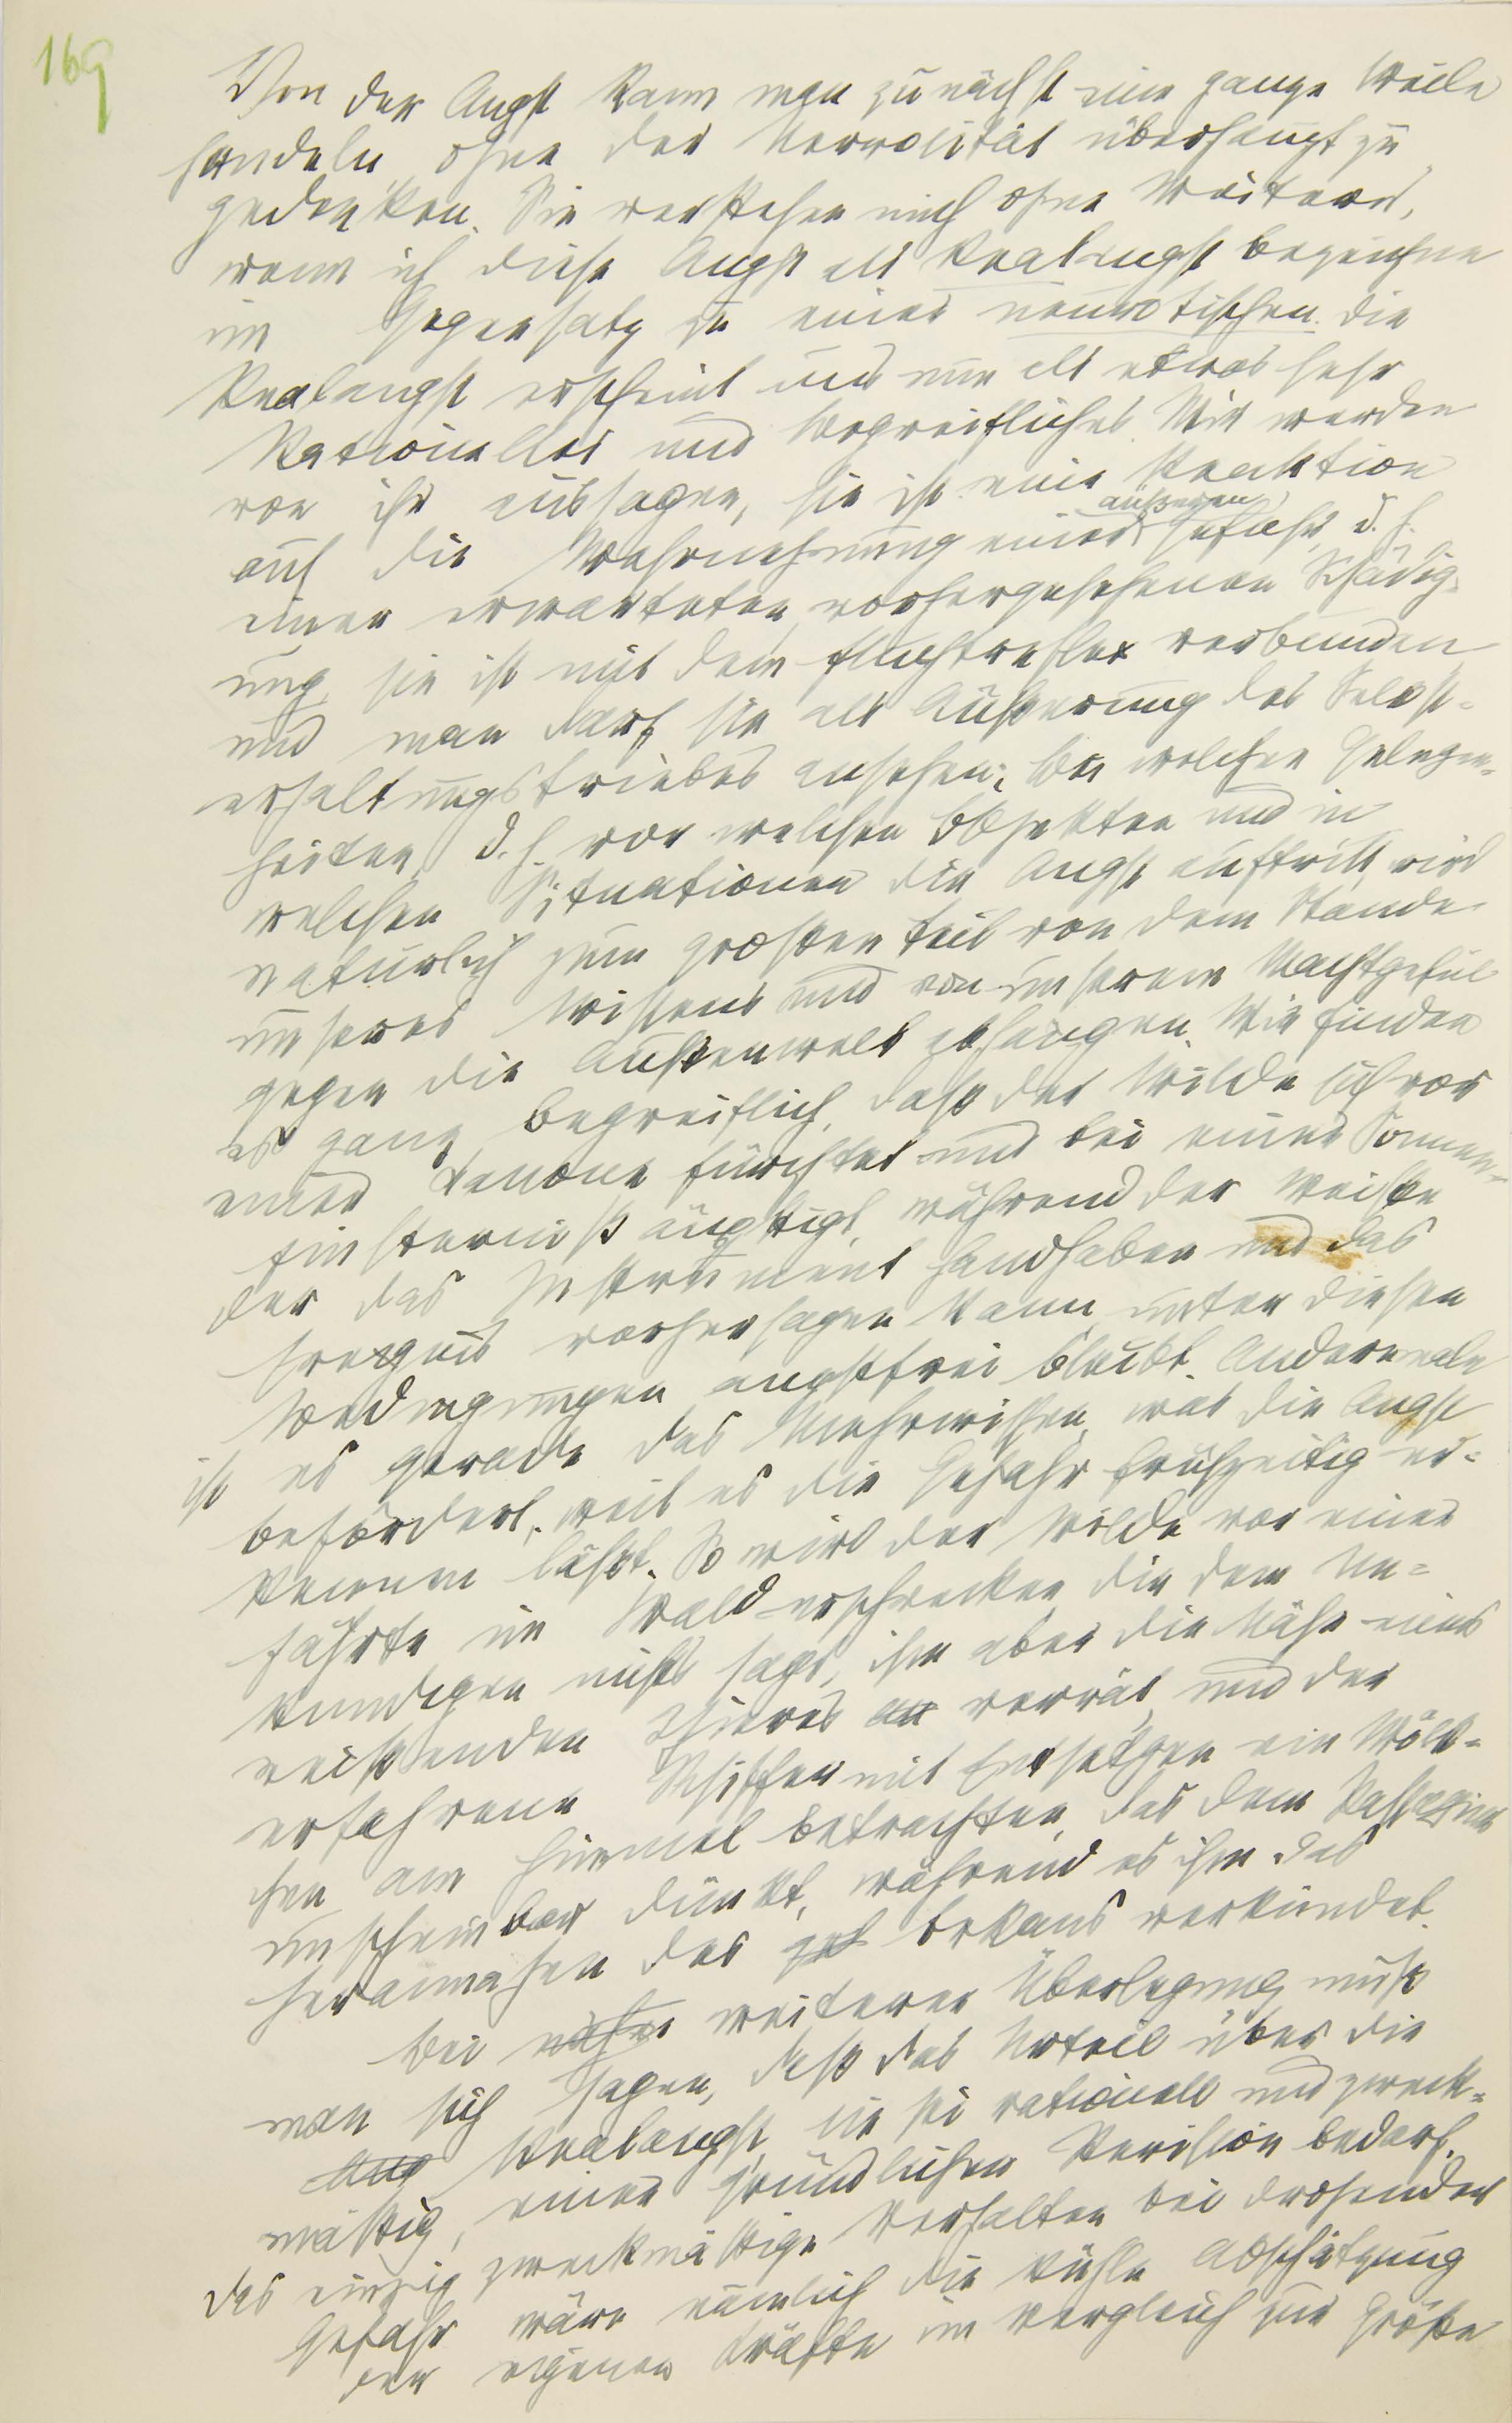 169
Von der Angst kann man zunächst eine ganze Weile
handeln, ohne der Nervosität überhaupt zu
gedenken. Sie verstehen mich ohne Weiteres,
wenn ich diese Angst als Realangst bezeichne
im Gegensatz zu einer neurotischen. Die
Realangst erscheint uns nun als etwas sehr
Rationelles und Begreifliches. Wir werden
von ihr aussagen, sie ist eine Reaktion
auf die Wahrnehmung einer äußeren Gefahr, d. h.
einer erwarteten, vorhergesehenen Schädig-
ung, sie ist mit dem Fluchtreflex verbunden,
und man darf sie als Äußerung des Selbst-
erhaltungstriebes ansehen. Bei welchen Gelegen-
heiten, d. h. vor welchen Objekten und in
welchen Situationen die Angst auftritt, wird
natürlich zum großen Teil von dem Stande
unseres Wissens und von unserem Machtgefül
gegen die Außenwelt abhängen. Wir finden
es ganz begreiflich, daß der Wilde sich vor
einer Kanone fürchtet und bei einer Sonnen-
finsterniß ängstigt, während der Weiße
der das Instrument handhaben und das
Ereignis vorhersagen kann, unter diesen
Bedingungen angstfrei bleibt. Anderemale
ist es gerade das Mehrwissen, was die Angst
befördert, weil es die Gefahr frühzeitig er-
kennen läßt. So wird der Wilde vor einer
Fährte im Wald erschrecken, die dem Un-
kundigen nichts sagt, ihm aber die Nähe eines
reißenden Thieres verrät, und der
erfahrene Schiffer mit Entsetzen ein Wölk-
chen am Himmel betrachten, das dem Passagier
unscheinbar dünkt, während es ihm das
Herannahen des Orkans verkündet.
Bei weiterer Überlegung muß
man sich sagen, daß das Urteil über die
Ang Realangst, sie sei rationell und zweck-
mäßig, einer gründlichen Revision bedarf.
Das einzig zweckmäßige Verhalten bei drohender
Gefahr wäre nämlich die kühle Abschätzung
der eigenen Kräfte im Vergleich zur Größe